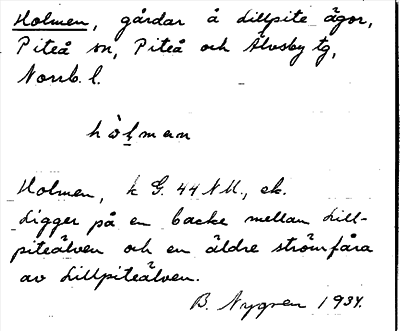 Holmen, gårdar å Lillpite ägor,
Piteå sn, Piteå och Älvsby tg,
Norrb. l.
hòlman
Holmen, k G. 44 NU., ek.
Ligger på en backe mellan Lill-
piteälven och en äldre strömfåra
av Lillpiteälven.
B. Nygren 1934.